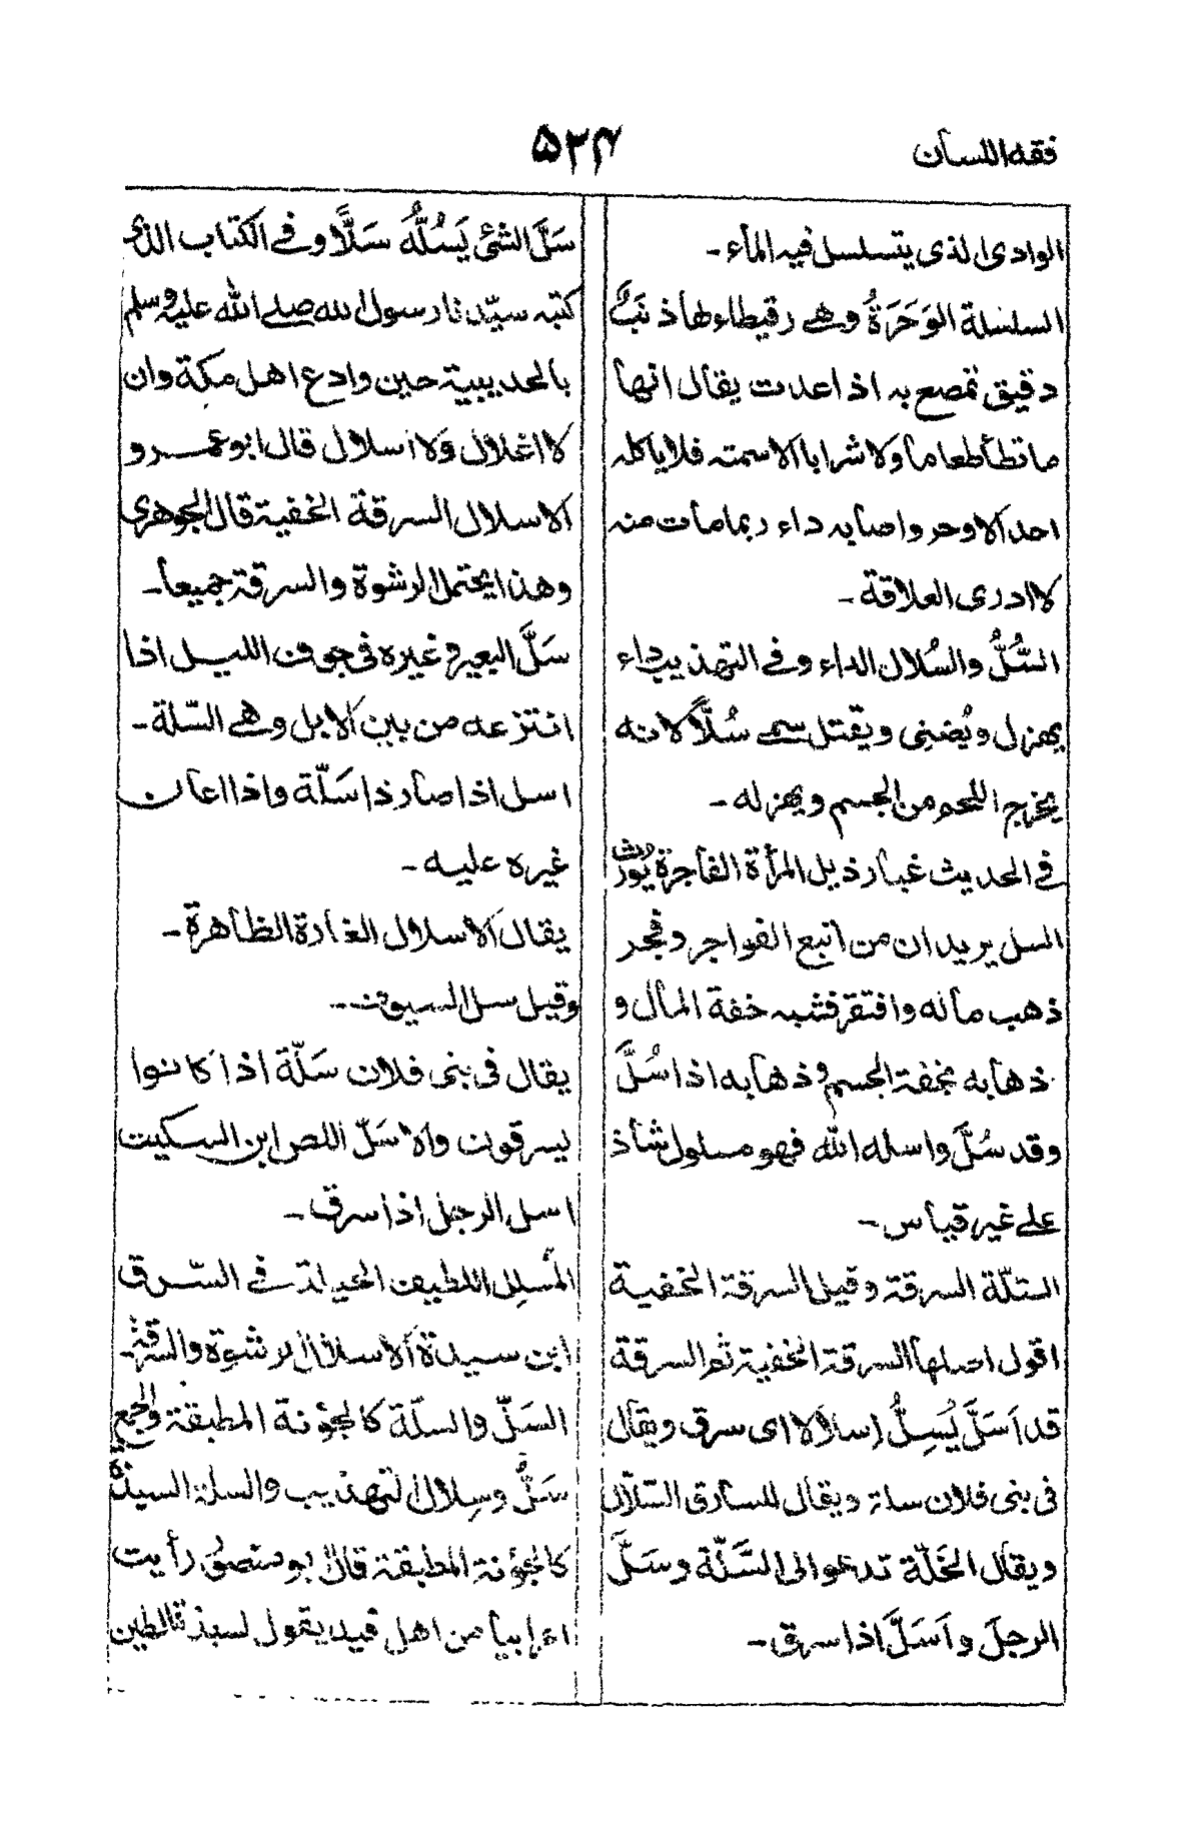 فقه اللسان
۵۳۴
الوادی الذی یتسلسل فیه الماء ۔
السلسلة الوَحَرَةُ وهی رقیطاء لها ذنَبٌ
دقیق تمصع به اذا عدت یقال انها
ما تطأ طعاماً ولا شراباً الا سمته فلا یاکله
احد الا وحر واصابه داء ربما مات منه
لا ادری العلاقة ۔
السُّلُّ والسُلال الداء وفی التهذیب داء
یهزل ویُضنِی ویقتل سمی سُلّاً لانه
یخرج اللحم من الجسم ویهزله ۔
فی الحدیث غبار ذیل المرأة الفاجرة یُورث
السل یرید ان من اتبع الفواجر وفجر
ذهب ماله وافتقر فشبه خفة المال و
ذهابه بخفة الجسم وذهابه اذا سُلَّ
وقد سُلَّ واسله الله فهو مسلول شاذ
علی غیر قیاس ۔
السلّة السرقة وقیل السرقة الخفیة
اقول اصلها السرقة الخفیة ثم السرقة
قد اَسَلَّ یُسِلُّ اِسلالا ای سرق ویقال
فی بنی فلان سلة ویقال للسارق السّلّال
ویقال الخَلّة تدعو الی السَّلّة وسَلَّ
الرجلَ واَسَلَّ اذا سرق ۔
سَلَّ الشئ یَسُلُّهُ سَلًّا وفی الکتاب الذی
کتبه سیّدنا رسول الله صلی الله علیه وسلم
بالحدیبیة حین وادع اهل مکة وان
لا اغلال وَلا اسلال قال ابو عمرو
الاسلال السرقة الخفیة قال الجوهری
وهذا یحتمل الرشوة والسرقة جمیعاً ۔
سَلَّ البعیر وغیره فی جوف اللیل اذا
انتزعه من بین الابل وهی السّلة ۔
اسل اذا صار ذا سَلّة واذا اعان
غیره علیه ۔
یقال الاسلال الغارة الظاهرة ۔
وقیل سل السیوف ۔
یقال فی بنی فلان سَلّة اذا کانوا
یسرقون والاسَلّ اللص ابن السکیت
اسل الرجل اذا سرق ۔
المُسلِل اللطیف الحیلة فی السّرق
ابن سیدة الاسلال الرشوة والسرقة ۔
السَلّ والسلّة کالجؤنة المطبقة والجمع
سَلٌّ وسِلال التهذیب والسلة السبذة
کالجؤنة المطبقة قال ابو منصور رأیت
اعرابیاً من اهل فید یقول لسبذة الطین